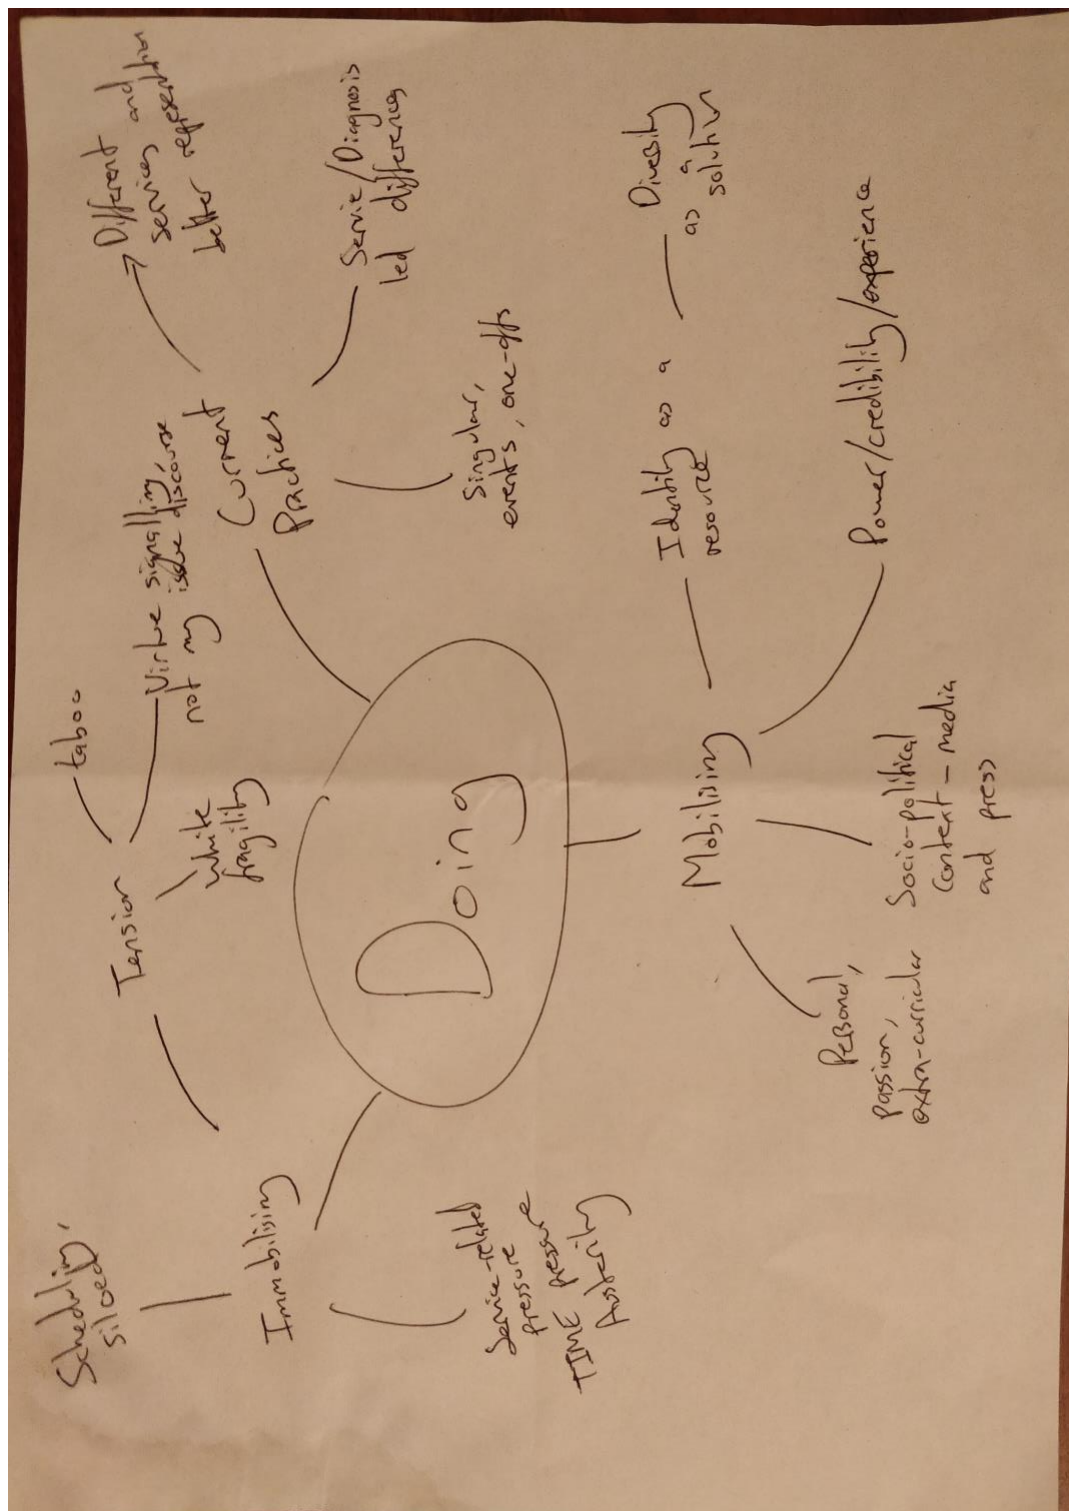 Scheduling,
siloed
Immobilising
Service-related
pressure
TIME pressure
Austerity
Tension
taboo
Virtue signalling,
not my issue discourse
White
fragility
Current
Practices
Different
services and
better representation
Service/Diagnosis
led differences
Singular,
events, one-offs
Doing
Mobilising
Identity as a
resource
Diversity
as a
solution
Power/credibility/experience
Socio-political
Context - media
and press
Personal,
passion,
extra-curricular